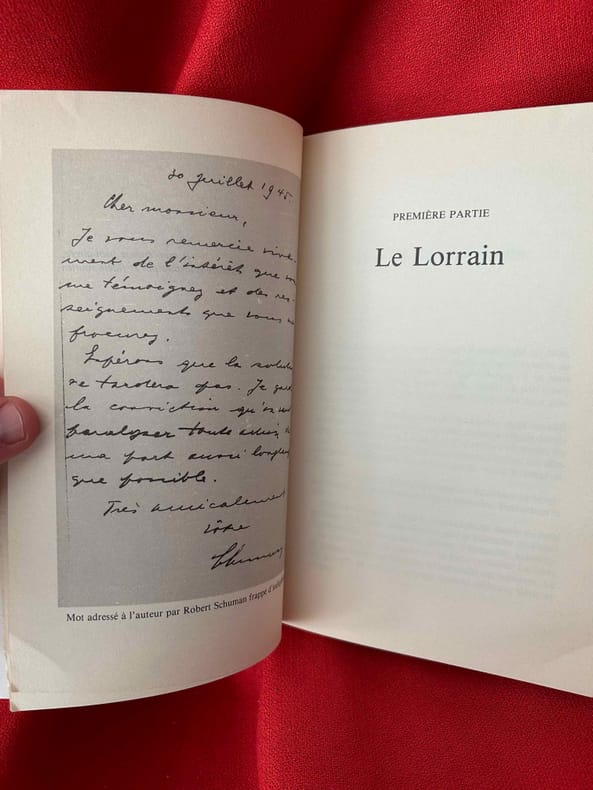 20 juillet 1945.
Cher monsieur,
Je vous remercie vive-
ment de l'intérêt que
me témoignez et des ren-
seignements que vous
procurez.
Espérons que la
ne tardera pas. Je
la conviction qu'on
paralyser toute action
ma part aussi
que possible.
Très amicalement
vôtre
Schuman
Mot adressé à l'auteur par Robert Schuman frappé
PREMIÈRE PARTIE
Le Lorrain